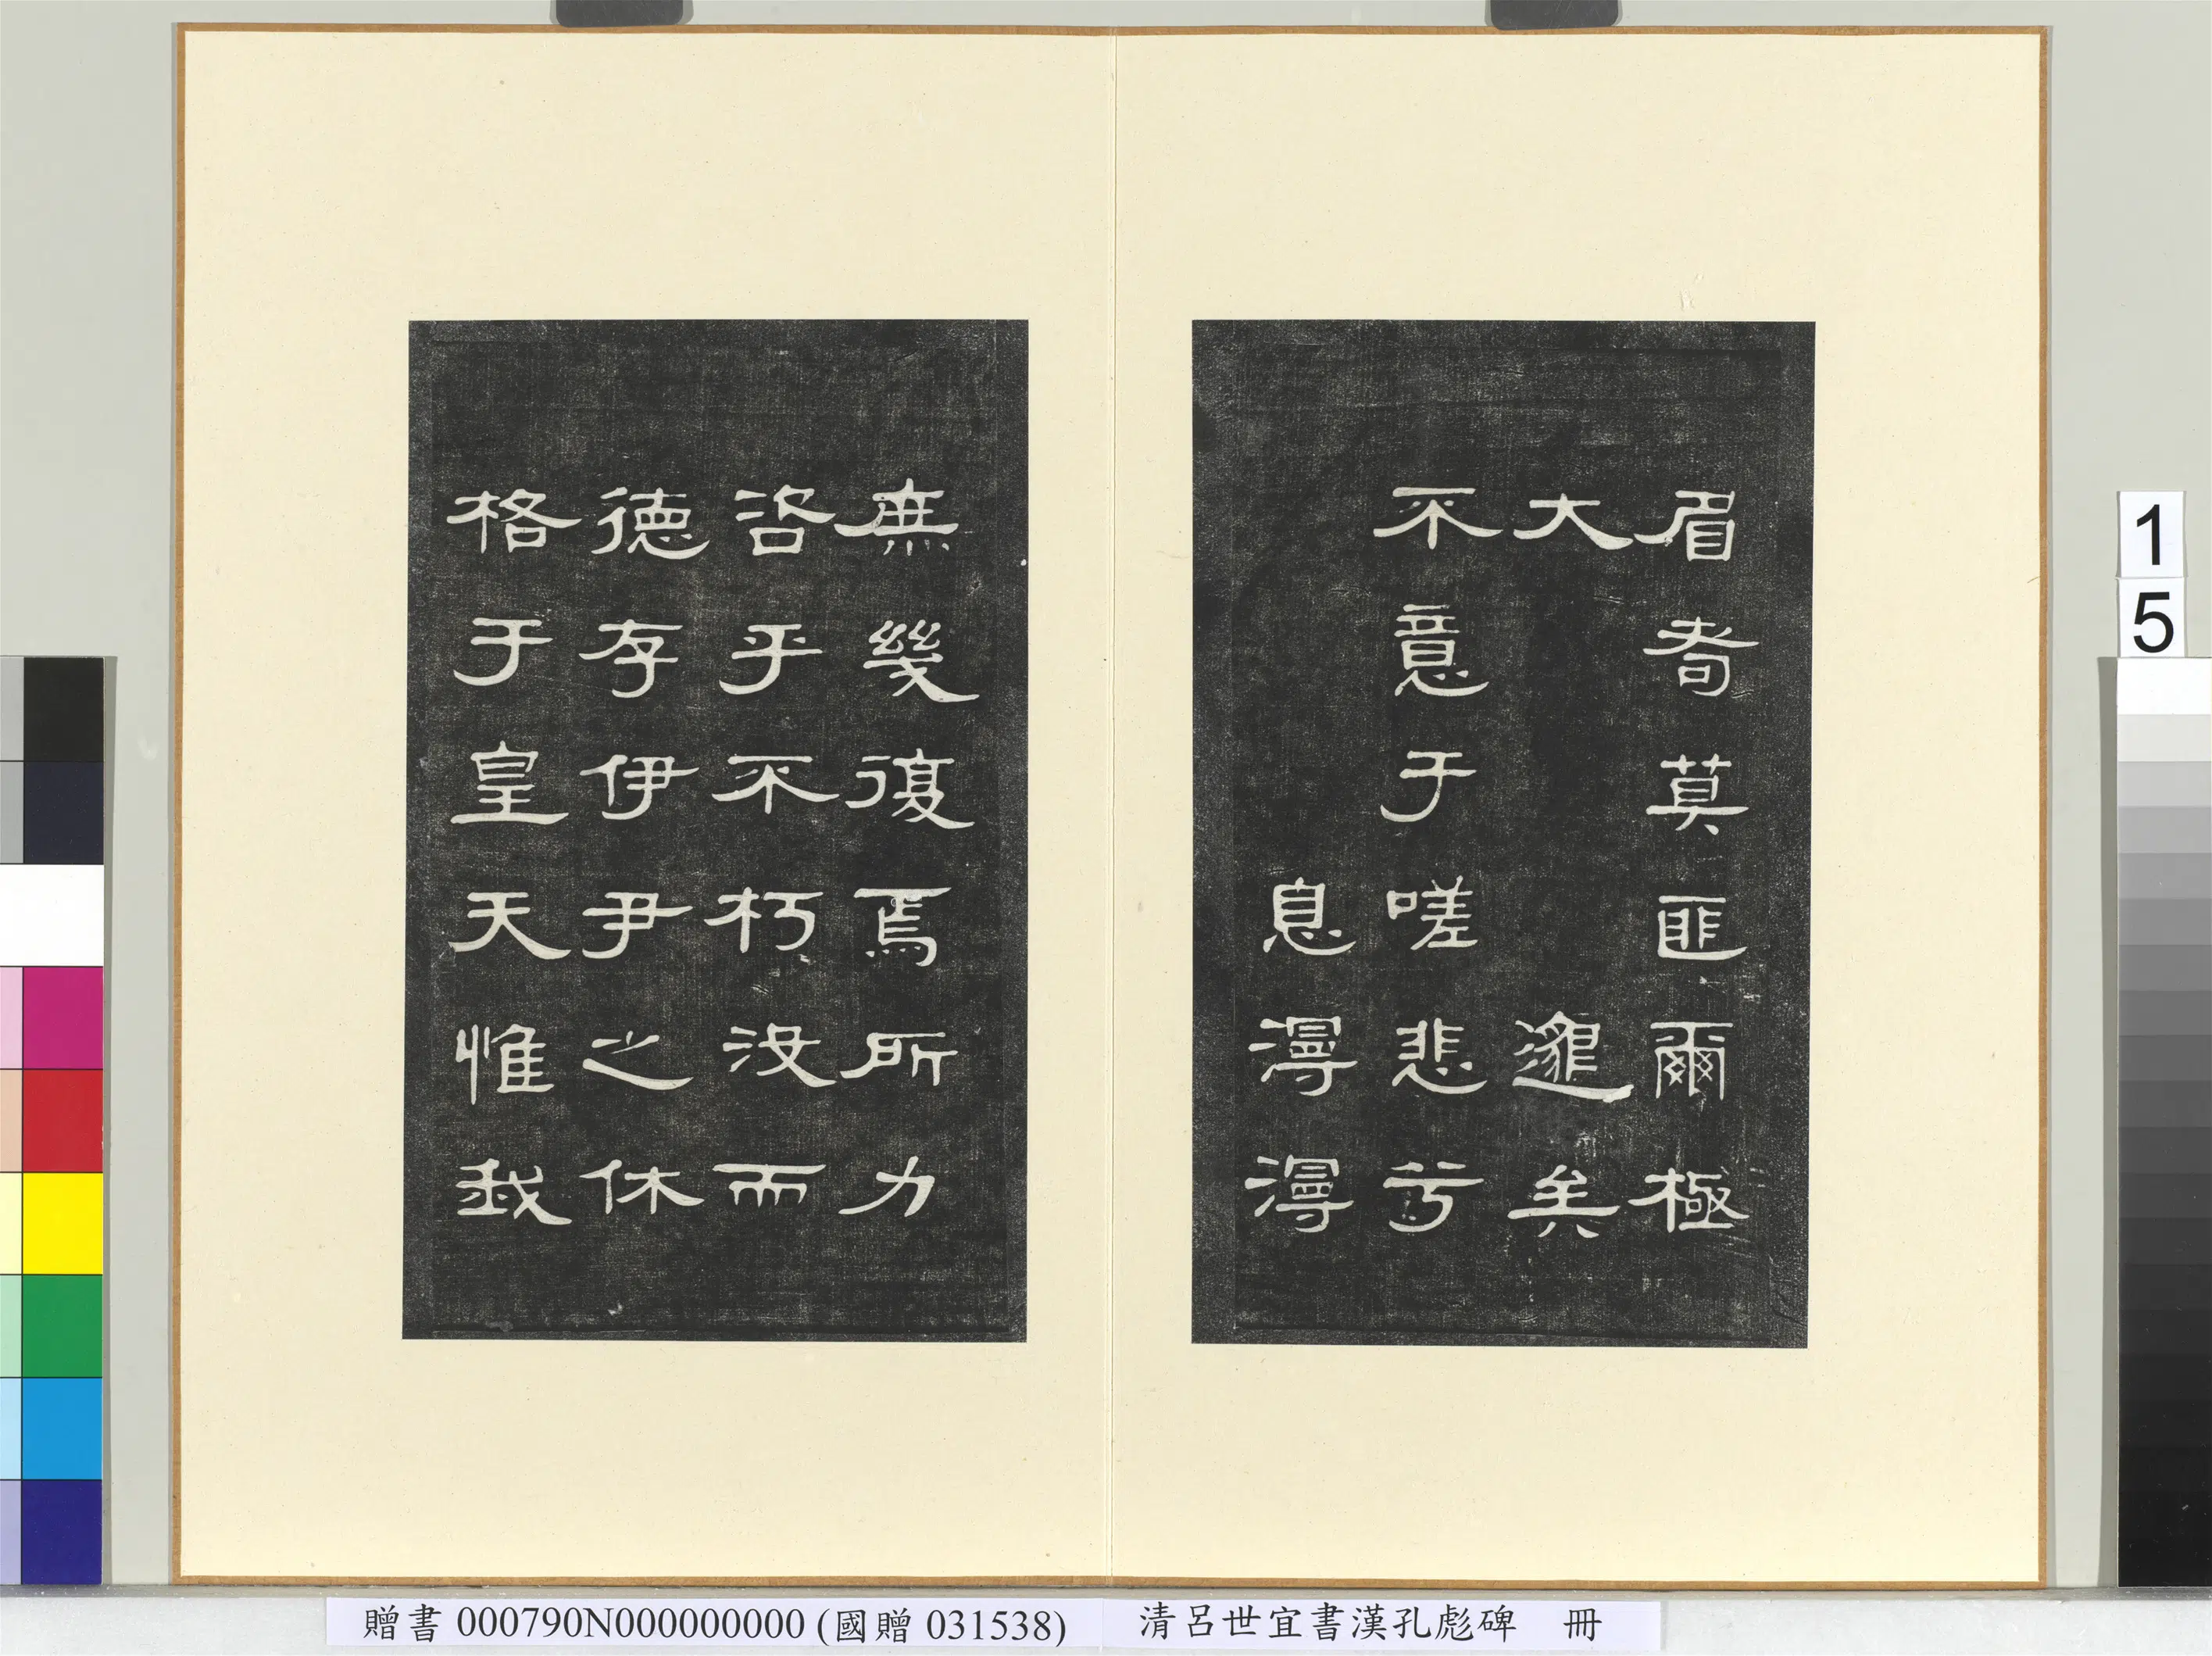 眉耇莫匪爾極
大    遯矣
不意于嗟悲兮
息淂淂
庶幾復焉所力
咨乎不朽没而
德存伊尹之休
格于皇天惟我
1
5
贈書 000790N000000000 (國贈 031538) 清呂世宜書漢孔彪碑 冊